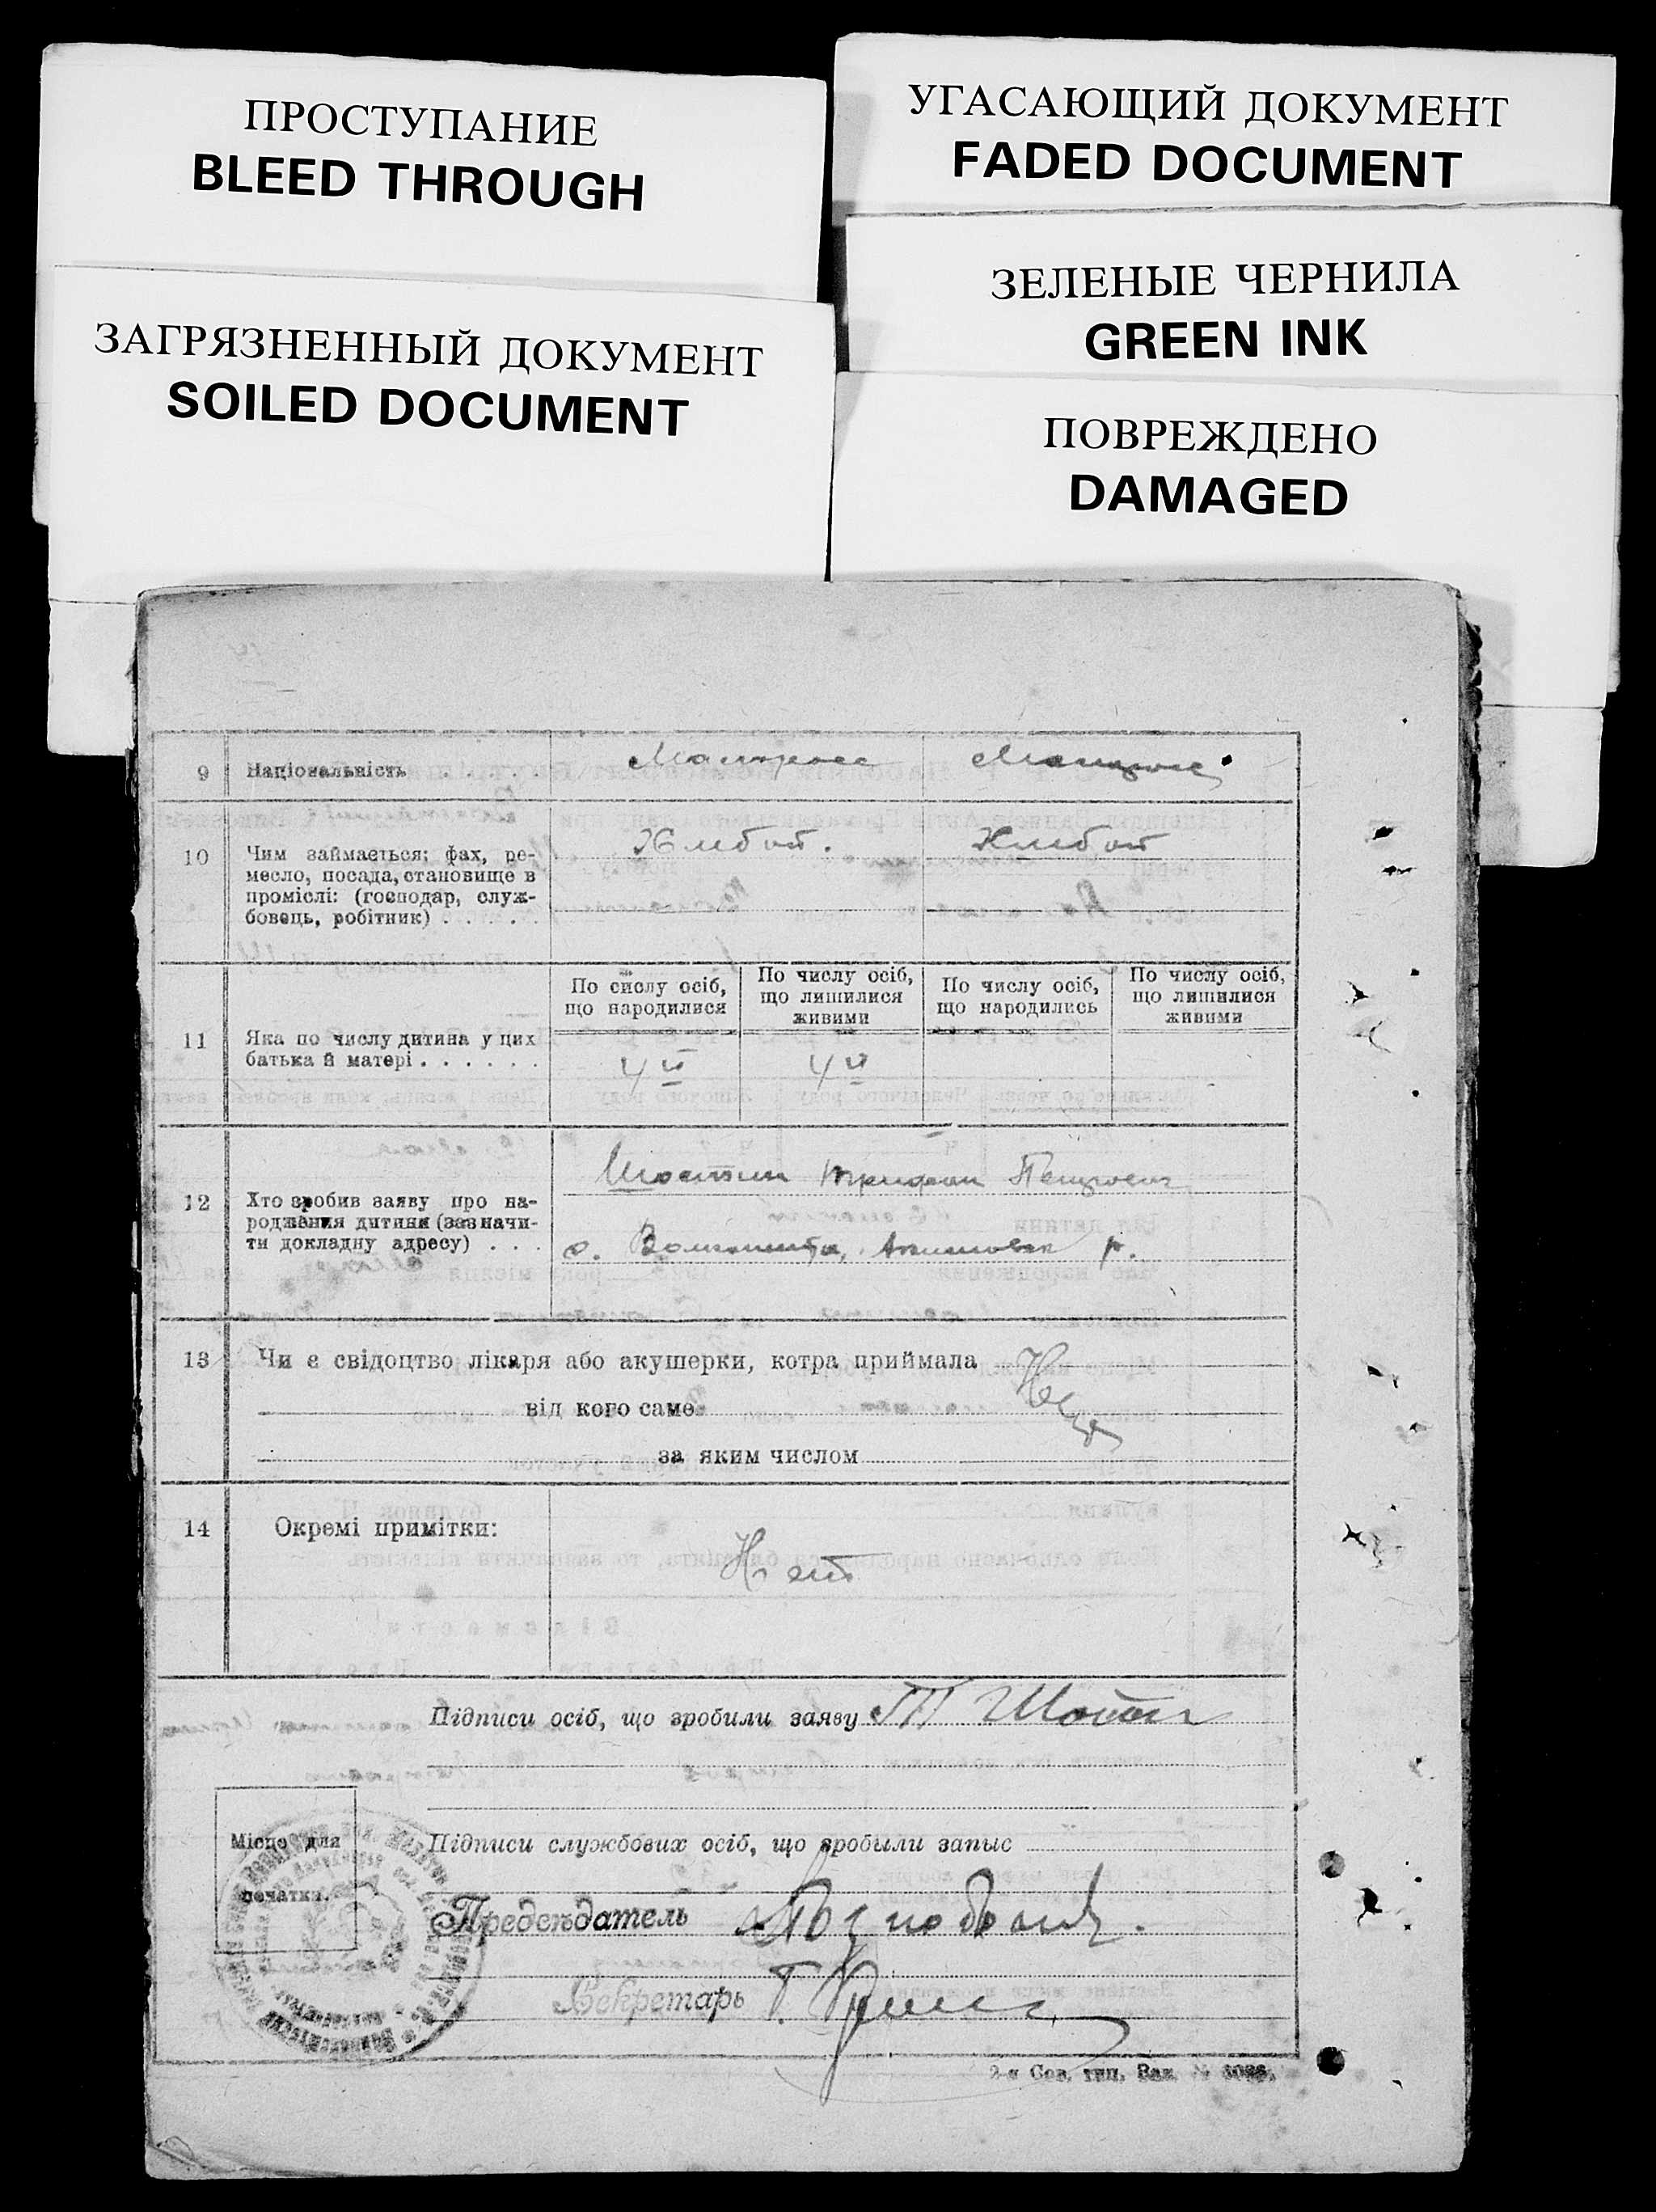 ПРОСТУПАНИЕ
BLEED THROUGH
УГАСАЮЩИЙ ДОКУМЕНТ
FADED DOCUMENT
ЗЕЛЕНЫЕ ЧЕРНИЛА
GREEN INK
ЗАГРЯЗНЕННЫЙ ДОКУМЕНТ
SOILED DOCUMENT
ПОВРЕЖДЕНО
DAMAGED
9 Національність
10 Чим займається: фах, ре-
месло, посада, становище в
проміслі: (господар, служ-
бовець, робітник) . . . . .
Хлебоп. Хлебоп
11 Яка по числу дитина у цих
батька й матері . . . . . .
По сислу осіб,
що народилися
По числу осіб,
що лишилися
живими
По числу осіб,
що народились
По числу осіб,
що лишилися
живими
4й 4й
12 Хто зробив заяву про на-
роджання дитини (зазначи-
ти докладну адресу) . . .
Трифон Петрович
с. р.
13 Чи є свідоцтво лікаря або акушерки, котра приймала Нет
від кого саме
за яким числом
14 Окремі примітки:
Нет
Підписи осіб, що зробили заяву
Місце для
печатки.
Підписи службових осіб, що зробыли запыс
Председатель
Секретарь
2-я Сов. тип. Зак. №